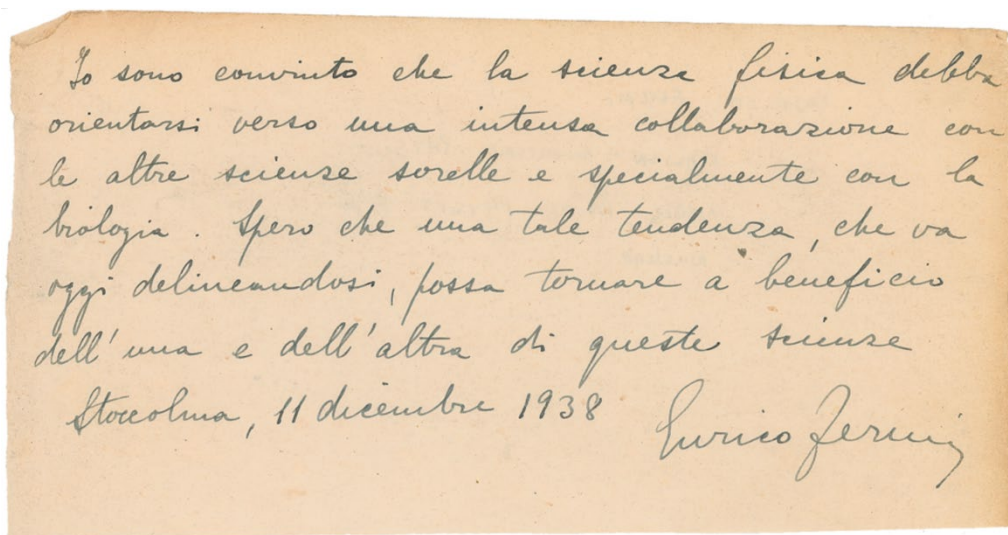 Io sono convinto che la scienza fisica debba
orientarsi verso una intensa collaborazione con
le altre scienze sorelle e specialmente con la
biologia. Spero che una tale tendenza, che va
oggi delineandosi, possa tornare a beneficio
dell'una e dell'altra di queste scienze
Stoccolma, 11 dicembre 1938
Enrico Fermi